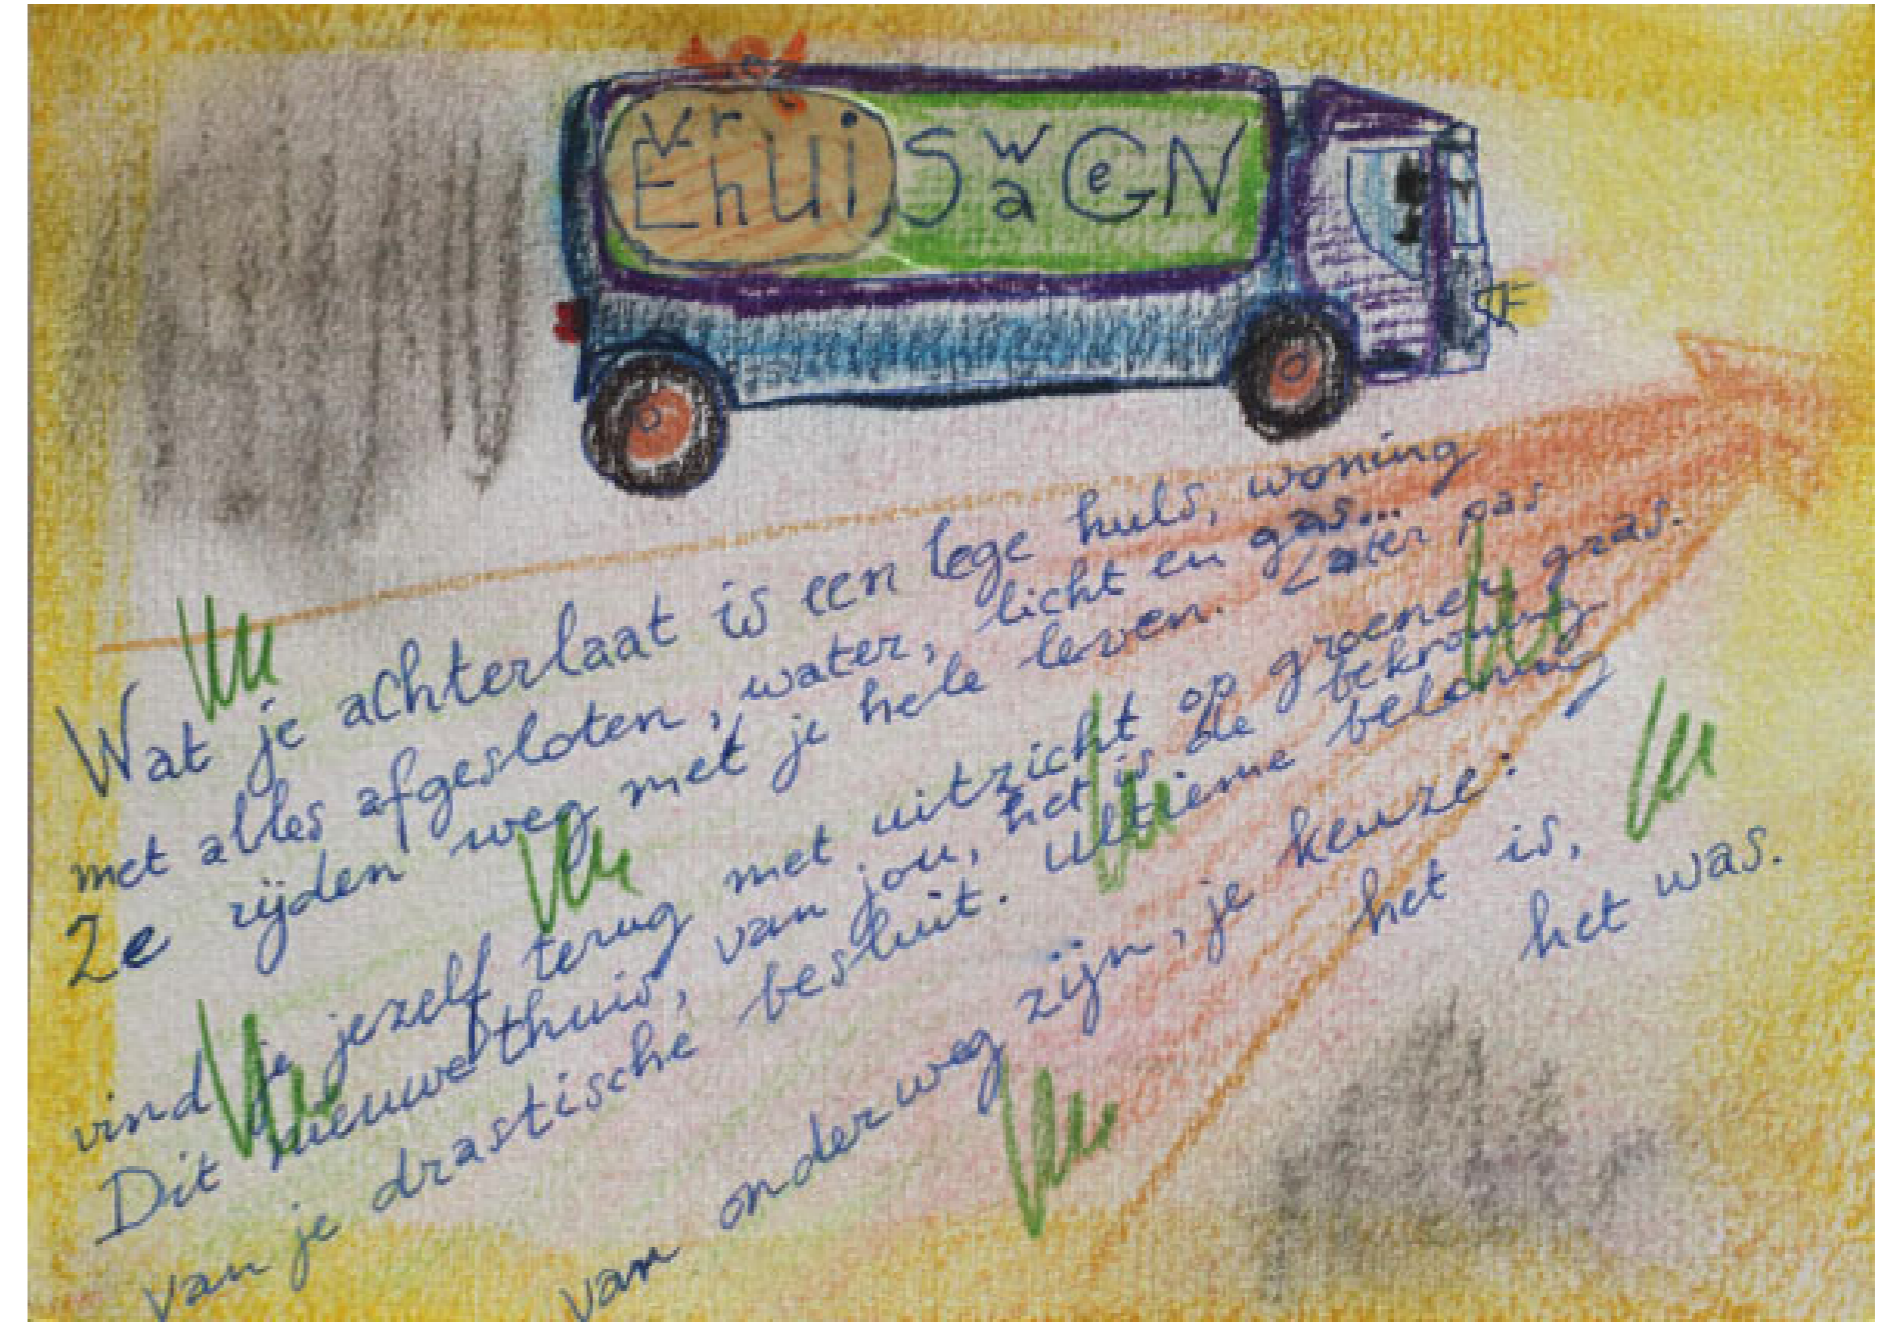 VErhUiSwaGeN
Wat je achterlaat is een lege huls, woning
met alles afgesloten, water, licht en gas...
Ze rijden weg met je hele leven. Later pas
vind je jezelf terug met uitzicht op groener gras.
Dit nieuwe thuis, van jou, het is de bekroning
van je drastische besluit. Ultieme beloning
van onderweg zijn, je keuze:
het is,
het was.